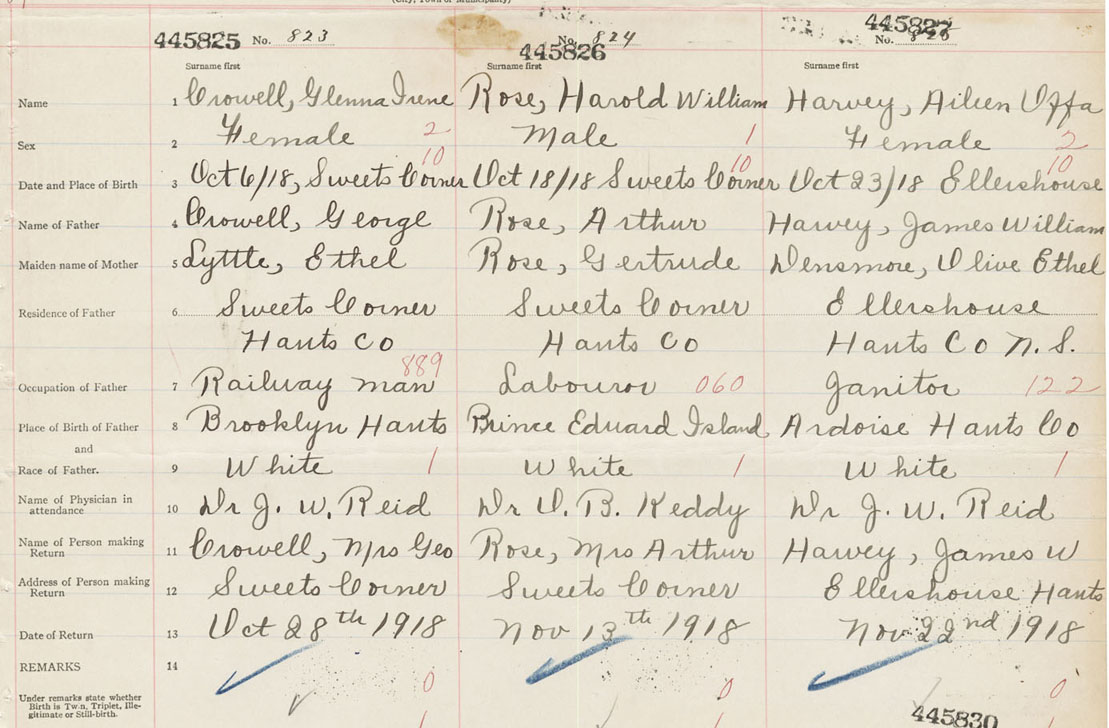 (City, Town or Municipality)
445825 No. 823
No. 824
445826
445827
No.
Surname first Surname first Surname first
Name 1 Crowell, Glenna Irene Rose, Harold William Harvey, Aileen Offa
Sex 2 Female 2 Male 1 Female 2
10 10 10
Date and Place of Birth 3 Oct 6/18, Sweets Corner Oct 18/18 Sweets Corner Oct 23/18 Ellershouse
Name of Father 4 Crowell, George Rose, Arthur Harvey, James William
Maiden name of Mother 5 Lyttle, Ethel Rose, Gertrude Densmore, Olive Ethel
Residence of Father 6 Sweets Corner Sweets Corner Ellershouse
Hants Co Hants Co Hants Co N.S.
889
Occupation of Father 7 Railway man Labouror 060 Janitor 122
Place of Birth of Father 8 Brooklyn Hants Prince Eduard Island Ardoise Hants Co
and
Race of Father. 9 White 1 White 1 White 1
Name of Physician in
attendance 10 Dr J. W. Reid Dr O. B. Keddy Dr J. W. Reid
Name of Person making
Return 11 Crowell, Mrs Geo Rose, Mrs Arthur Harvey, James W
Address of Person making
Return 12 Sweets Corner Sweets Corner Ellershouse Hants
Date of Return 13 Oct 28th 1918 Nov 13th 1918 Nov 22nd 1918
REMARKS 14
0 0 0
Under remarks state whether
Birth is Twin, Triplet, Ille-
gitimate or Still-birth.
445830
1 1 1